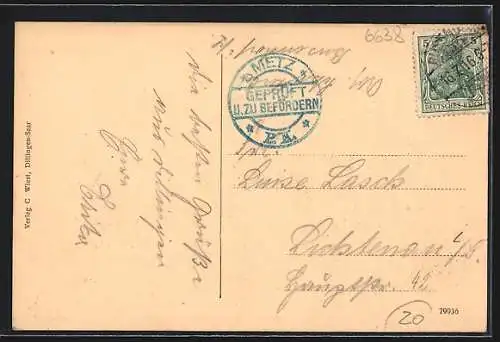 Verlag C. Wirtl, Dillingen-Saar
die besten Grüße
aus Dillingen
Eure
METZ
GEPRÜFT
U. ZU BEFÖRDERN
P. K.
5
DEUTSCHES REICH
6638
Luise Lasch
Lichtenau i/S
Hauptstr. 42
20
79936